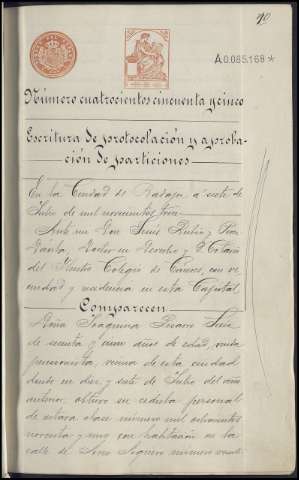 10
A0.085.168*
Número cuatrocientos cincuenta y cinco
Escritura de protocolación y aproba-
ción de particiones
En la Ciudad de Badajoz, a siete de
Julio de mil novecientos tres
Ante mi Don Luis Rubio y
Doctor en Derecho y
del Ilustre Colegio de Cáceres, con ve-
cindad y residencia en esta Capital
Comparecen
Doña Joaquina
de sesenta y cinco años de edad, viuda
pensionista, vecina de esta ciudad
donde en diez y siete de Julio del año
anterior, obtuvo su cédula personal
de octava clase número mil ochocientos
noventa y uno, con habitación en la
calle de número